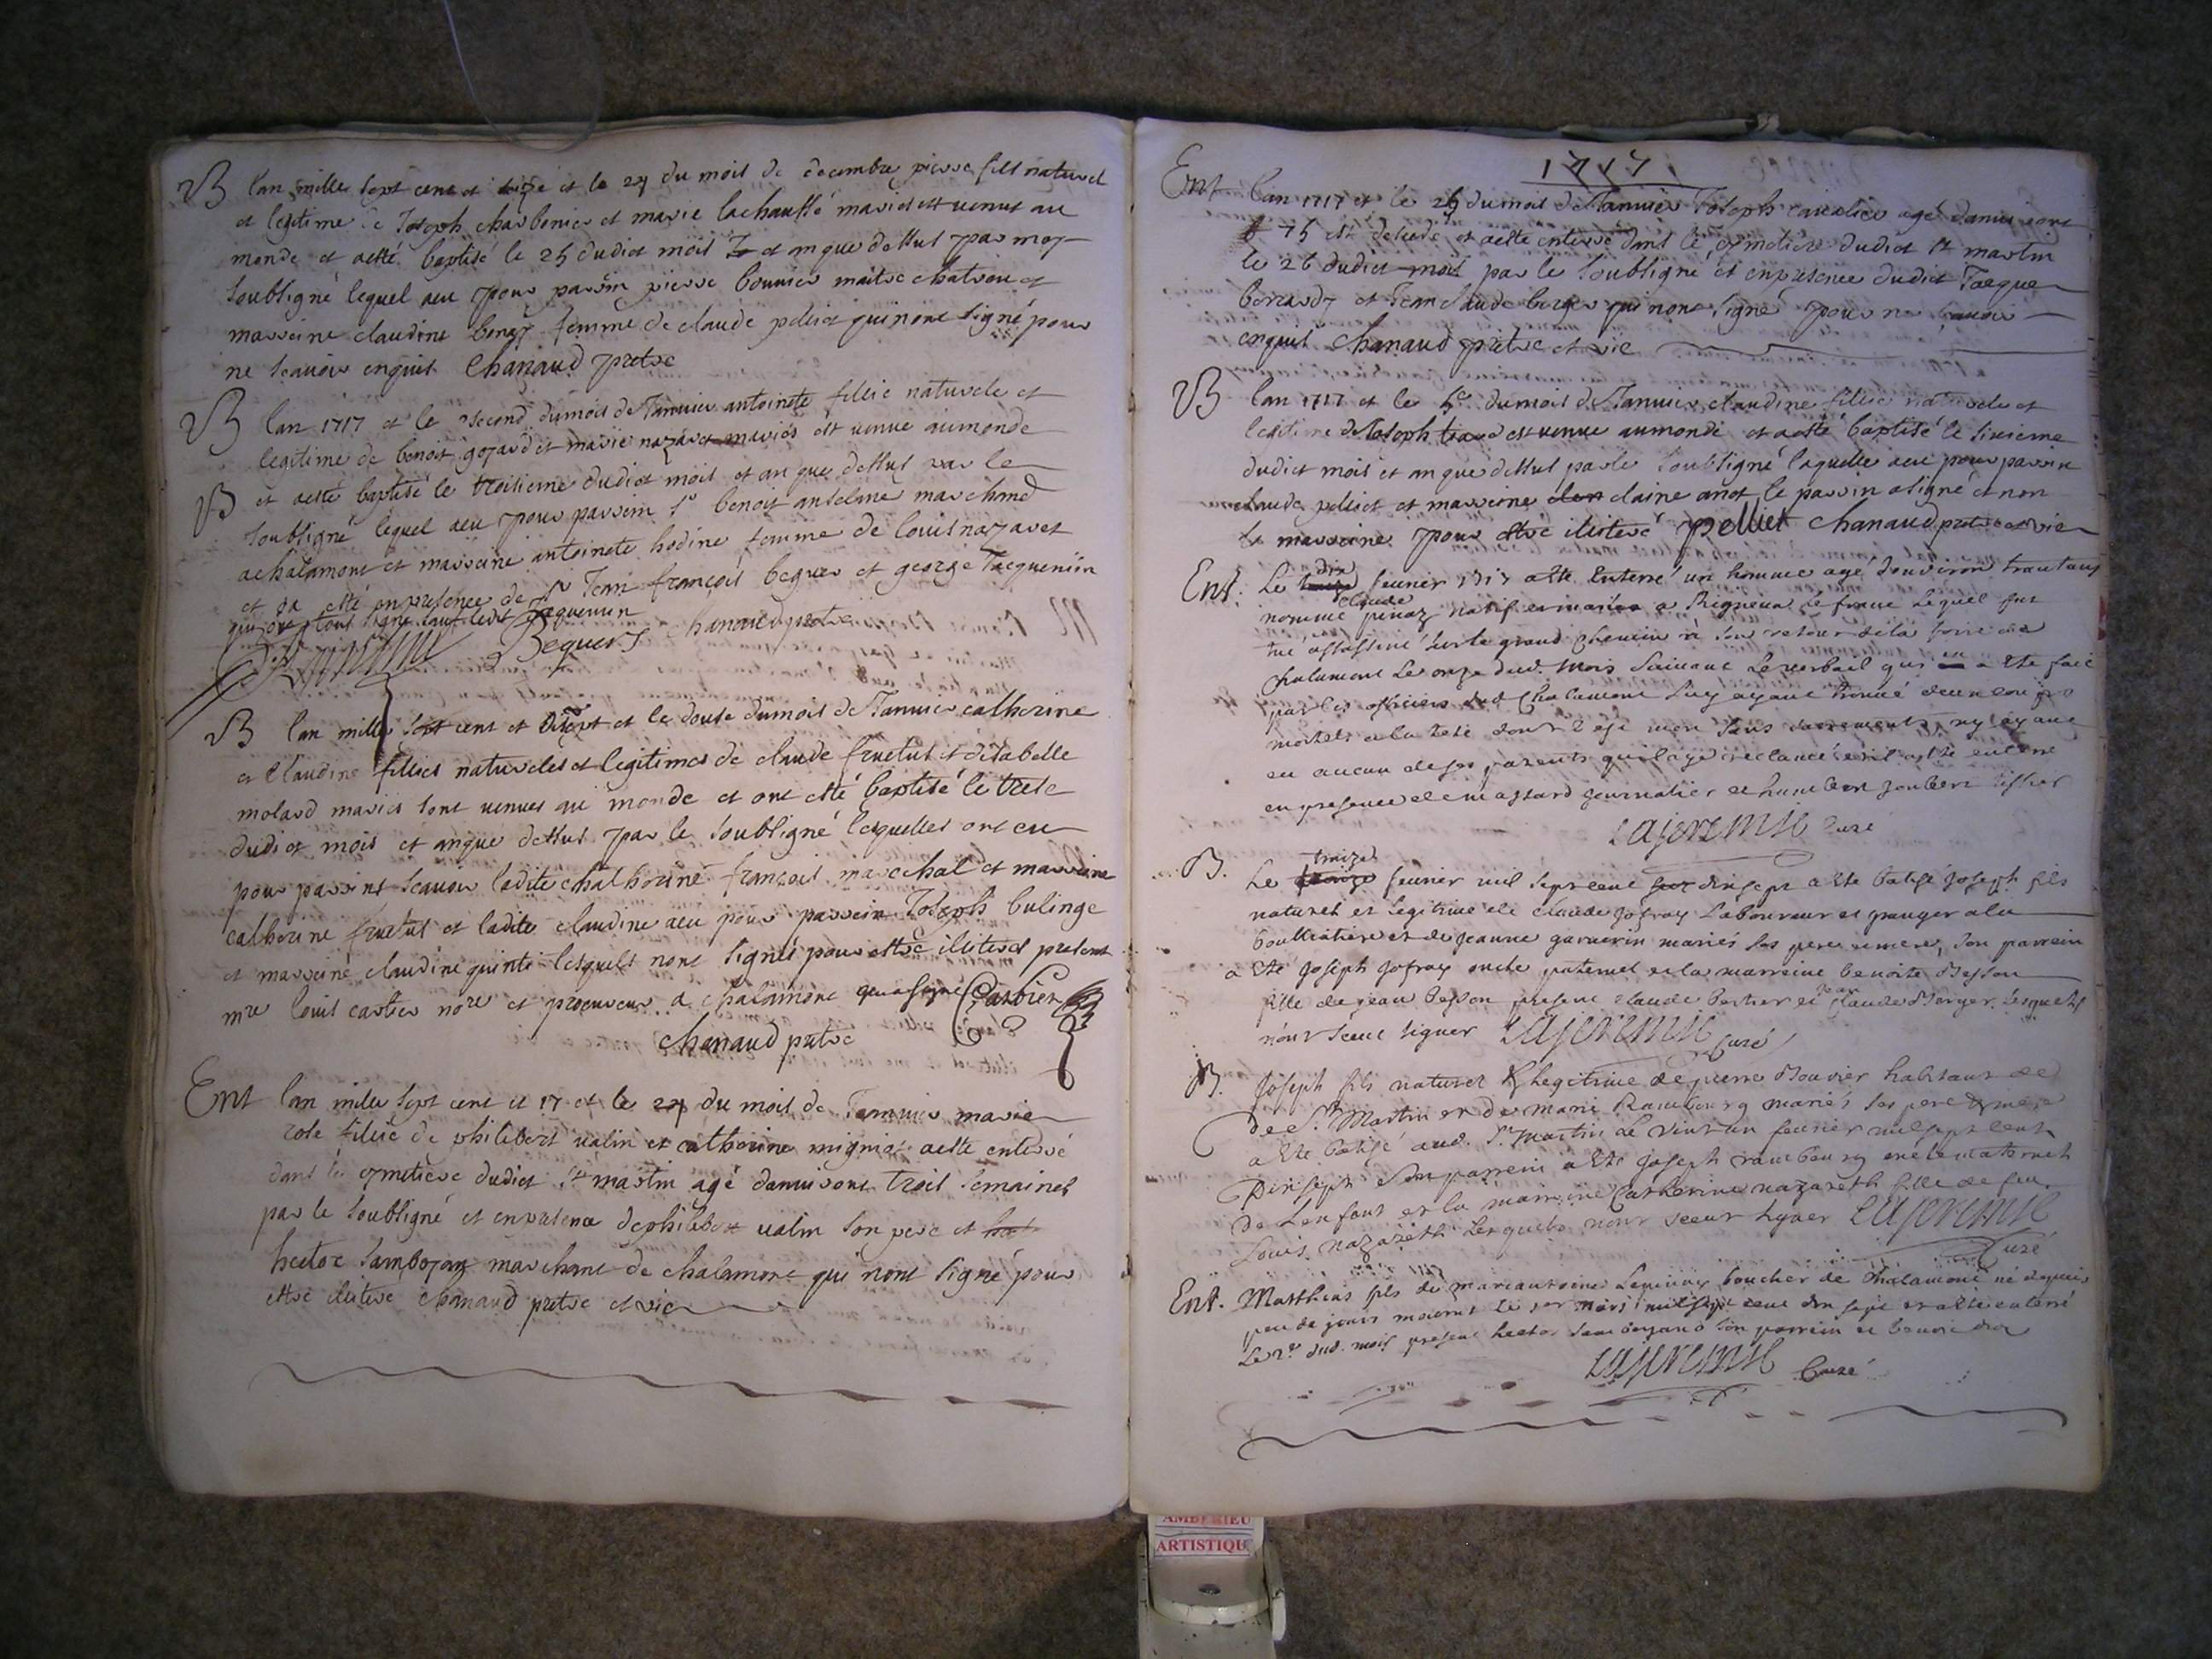 B lan mille sept cent et seize et le 24 du mois de decembre pierre fils naturel
et legitime de Joseph charbonier et marie lachaussé mariés est venus au
monde et aesté baptisé le 25 dudict mois et an que dessus par moy
soubsigné lequel aeu pour parrin pierre bouvier maitre chatron et
marreine claudine femme de claude pelict qui nont signé pour
ne scavoir enquis Chanaud pretre
B lan 1717 et le second dumois de Januier antoinete fillie naturele et
legitime de benoit goyard et marie nazaret mariés est venue aumonde
B et aesté baptisé le troisieme dudict mois et an que dessus par le
soubsigné lequel aeu pour parrein sr benoit anselme marchand
achalamont et marreine antoinete hodine femme de louis nazaret
et ca esté enpresence de sr Jean françois beguer et george Jacquemin
qui ont tous signé sauf ledit Jacquemin
Beguers Chanaud pretre
B lan mille sept cent et diset et le douse dumois de Januier catherine
et Claudine fillies natureles et legitimes de claude fructus et disabelle
molard mariés sont venues au monde et ont esté baptisé le trese
dudict mois et anque dessus par le soubsigné lesquelles ont eu
pour parrins scavoir ladite chatherine françois marechal et marreine
catherine fructus et ladite claudine aeu pour parrein Joseph bulinge
et marreine claudine quinte lesquels nont signés pour estre iliterés present
mre louis carbier nore et procureur a chalamont qui a signé Carbier
Chanaud pretre
Ent lan mille sept cent et 17 et le 24 du mois de Januier marie
rose fillie de philibert valin et catherine mignot aesté enterré
dans le cymetiere dudict st martin agé danuiront trois semaines
par le soubsigné et enpresence de philibert valin son pere et
hector marchant de chalamont qui nont signé pour
estre ilitere chanaud pretre et vic
1717
Ent lan 1717 et le 25 dumois de Januier Joseph agé danuiront
75 est decedé et aesté enterré dans le cymetiere dudict st martin
le 26 dudict mois par le soubsigné et enpresence dudict Jacque
berardy et Jean claude berger qui nont signé pour ne scavoir
enquis Chanaud pretre et vic
B lan 1717 et le 5e dumois de Januier claudine fillie naturele et
legitime de Joseph est venue aumonde et aesté baptisé le sixieme
dudict mois et an que dessus parle soubsigné laquelle aeu pour parrin
claude pelict et marreine claine anot le parrin a signé et non
la marreine pour estre iliteré pelliet Chanaud pretre et vic
Ent. Le dix feurier 1717 a esté Enterré un homme agé denviron trantans
nommé claude natif et mariéa a Rigneux le franc Lequel fut
tué assassiné sur le grand chemin a son retour de la foire de
chalamont Le onze dud. mois suivant Le verbail qui en a esté fait
par les officiers dud Chalamont Luy ayant trouvé deux coups
mortels a la teste dont il est mort sans sacrements ny ayant
eu aucun de ses parents qui laye reclamé et il a esté enterré
en presence de massard journalier et humbert joubert tissier
Lajeremie Curé
B. Le traize feurier mil sept cent dixsept a esté batisé Joseph fils
naturel et Legitime de claude Jofray Laboureur et granger a la
et de jeanne garnerin mariés ses pere et mere, son parrein
a esté Joseph Jofray oncle paternel et la marreine benoite Besson
fille de jean besson present claude bertier et jean claude Lesquels
n'ont sceut signer Lajeremie Curé
B. Joseph fils naturel & Legitime de pierre Bouvier habitant de
de St. Martin et de marie Rambourg mariés ses pere & mere
a esté batisé aud. St. Martin Le vint un feurier mil sept cent
Dixsept son parrein a esté Joseph rambourg oncle maternel
de Lenfant et la marreine Catherine nazareth fille de feu
Louis nazareth Lesquels nont sceut signer Lajeremie
Curé
Ent. Matthieu fils de marcantoine boucher de chalamont né depuis
peu de jours mourut Le 1er mars mil sept cent dix sept et a esté enterré
Le 2e dud. mois present hector son parrein et benoit
Lajeremie Curé
AMBERIEU
ARTISTIQU